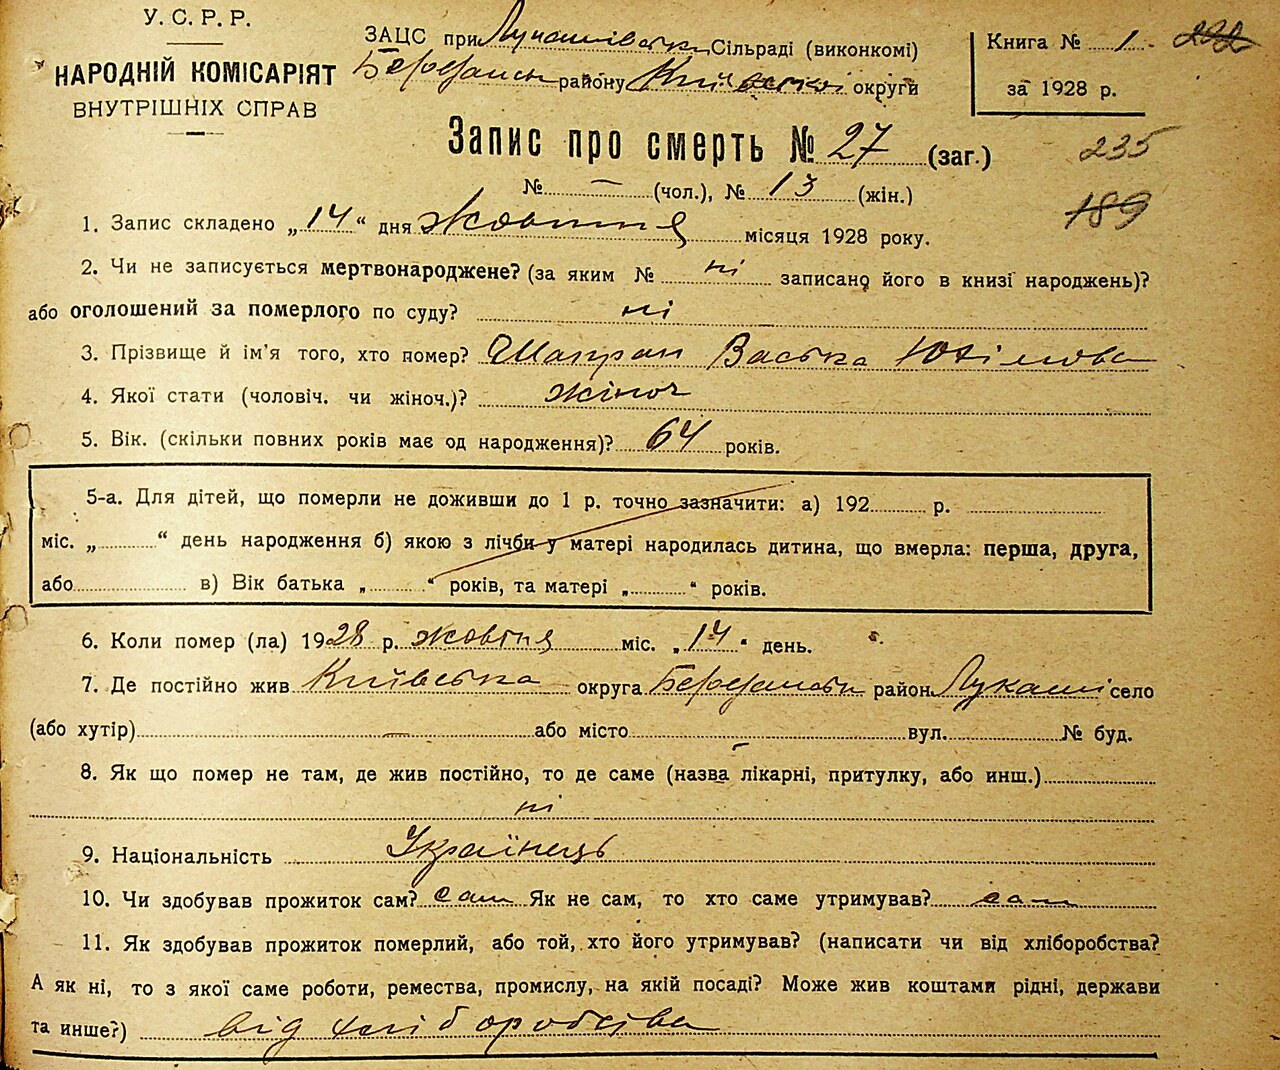 У. С. Р. Р.
НАРОДНІЙ КОМІСАРІЯТ
ВНУТРІШНІХ СПРАВ
ЗАЦС при Лукашівській Сільраді (виконкомі)
Березанськ району Київської округи
Книга № 1. 222
за 1928 р.
Запис про смерть № 27 (заг.)
235
№ – (чол.), № 13 (жін.)
189
1. Запис складено „14“ дня Жовтня місяця 1928 року.
2. Чи не записується мертвонароджене? (за яким № ні записано його в книзі народжень)?
або оголошений за померлого по суду? ні
3. Прізвище й ім'я того, хто помер? Шапран Васька
4. Якої стати (чоловіч. чи жіноч.)? жіноч
5. Вік. (скільки повних років має од народження)? 64 років.
5-а. Для дітей, що померли не доживши до 1 р. точно зазначити: а) 192 р.
міс. „ “ день народження б) якою з лічби у матері народилась дитина, що вмерла: перша, друга,
або в) Вік батька „ “ років, та матері „ “ років.
6. Коли помер (ла) 1928 р. жовтня міс. „14“ день.
7. Де постійно жив Київська округа Березанськ район Лукаші село
(або хутір) – або місто – вул. № буд.
8. Як що помер не там, де жив постійно, то де саме (назва лікарні, притулку, або инш.)
ні
9. Національність Українець
10. Чи здобував прожиток сам? сам Як не сам, то хто саме утримував? сам
11. Як здобував прожиток померлий, або той, хто його утримував? (написати чи від хліборобства?
А як ні, то з якої саме роботи, ремества, промислу, на якій посаді? Може жив коштами рідні, держави
та инше?) від хліборобства